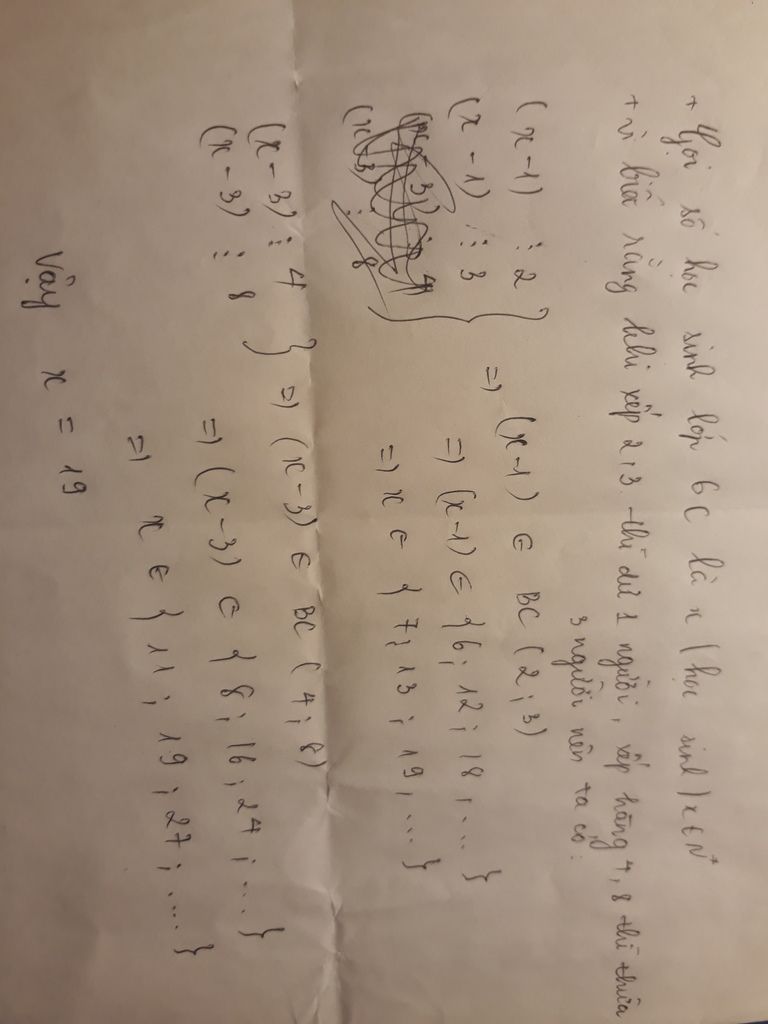 + Gọi số học sinh lớp 6C là x (học sinh) x ∈ N*
+ Vì biết rằng khi xếp 2, 3 thì dư 1 người, xếp hàng 4, 8 thì thừa
3 người nên ta có:
(x-1) ⋮ 2
(x-1) ⋮ 3
} => (x-1) ∈ BC (2; 3)
=> (x-1) ∈ {6; 12; 18; ...}
=> x ∈ {7; 13; 19; ...}
(x-3) ⋮ 4
(x-3) ⋮ 8
} => (x-3) ∈ BC (4; 8)
=> (x-3) ∈ {8; 16; 24; ...}
=> x ∈ {11; 19; 27; ...}
Vậy x = 19